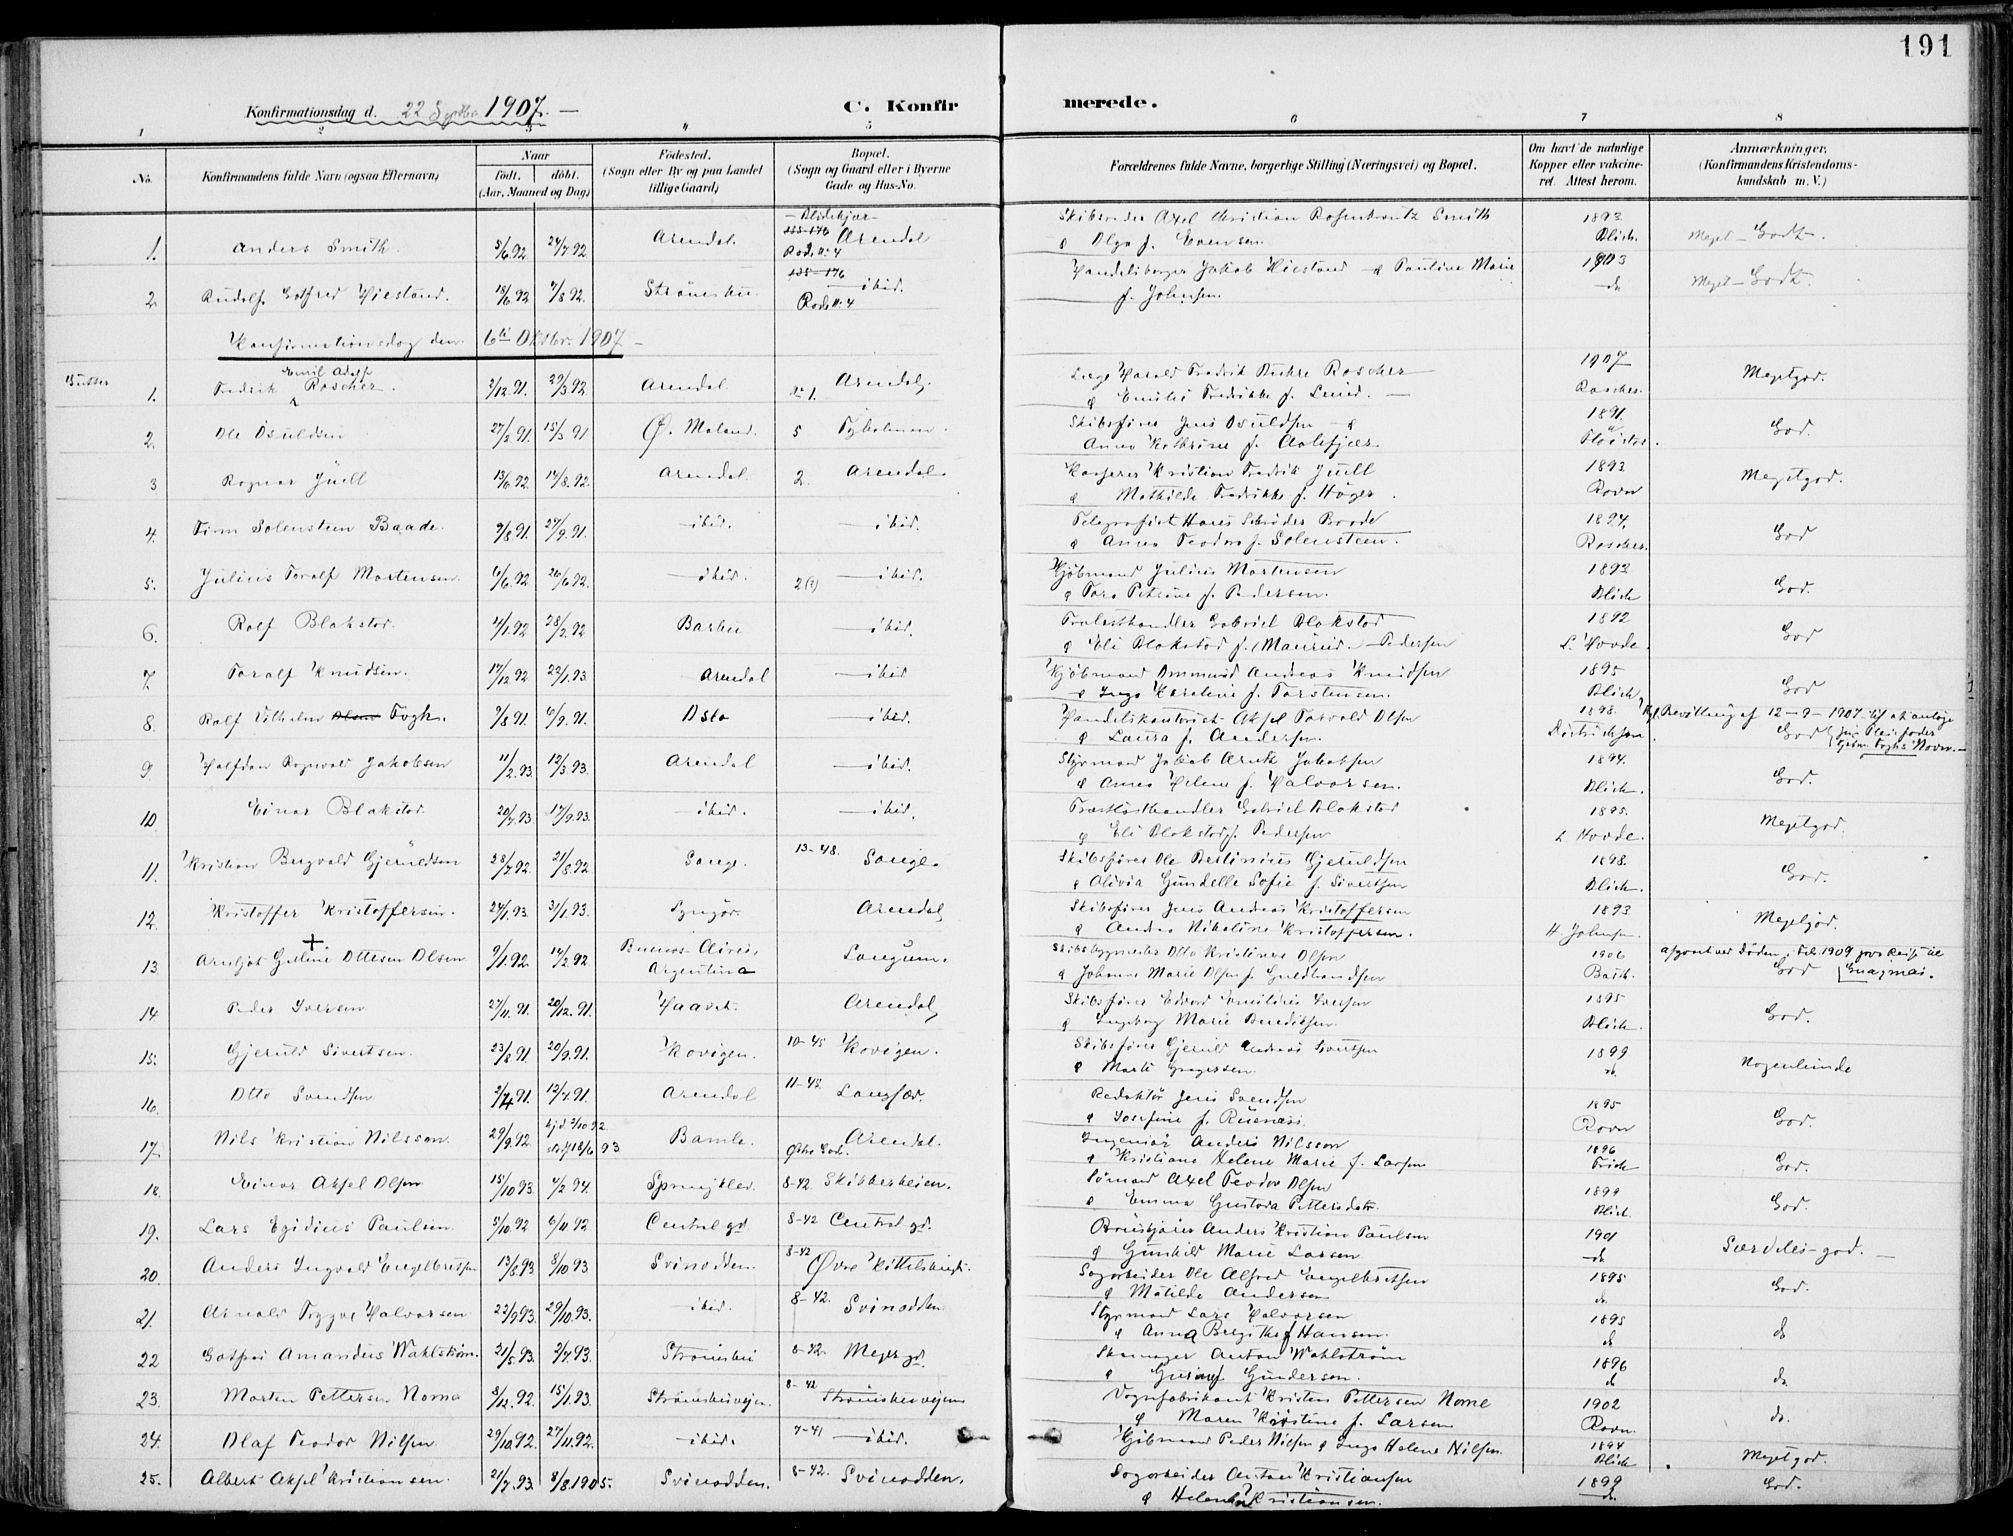 191
Konfirmationsdag d. 22 Septbr 1907. —
C. Konfirmerede.
1 2 3 4 5 6 7 8
No.
Konfirmandens fulde Navn (ogsaa Efternavn)
Naar
født. døbt.
(Aar, Maaned og Dag)
Fødested.
(Sogn eller By og paa Landet tillige Gaard)
Bopæl.
(Sogn og Gaard eller i Byerne Gade og Hus-No.
Forældrenes fulde Navne, borgerlige Stilling (Næringsvei) og Bopæl.
Om havt de naturlige Kopper eller vaccineret. Attest herom.
Anmærkninger.
(Konfirmandens Kristendomskundskab m. V.)
1. Anders Smith. 5/6.92 24/7.92 Arendal. Arendal Skibsreder Axel Christian Rosenkrantz Smith & Olga f. Evensen. 1893 Blich. Meget Godt.
2. Rudolf Gotfred Hiestand. 18/6.92 7/8.92. Strømsbu. ibid. Handelsborger Jakob Hiestand & Pauline Marie f. Johnsen. 1903 do Meget Godt.
Konfirmationsdag den 6te Oktbr. 1907 —
Gutter
1. Fredrik Emil Adolf Roscher. 2/12.91. 29/3.92. Arendal No 1. Arendal. Læge Harald Fredrik Roscher & Emilie Fredrikke f. Lund. 1907 Roscher. Megetgod.
2. Ole Osuldsen 27/2.91. 15/3.91 Ø. Moland. 5 Tyholmen. Skibsfører Jens Osuldsen & Anne Kathrine f. 1891. God.
3 Ragnar Juell 13/6.92. 14/8.92. Arendal. 2. Arendal. Kasserer Kristian Fredrik Juell & Mathilde Fredrikke f. Høyer. 1893 Rovn Megetgod.
4. Finn Solensteen Baade. 9/8.91. 27/9.91. ibid. ibid. Telegrafist Hans Schrøder Baade & Anna Teodora f. Solensteen. 1894. Roscher. God
5. Julius Toralf Mortensen. 6/6.92. 26/6.92. ibid. 2(?) ibid. Kjøbmand Julius Mortensen & Tora Petrine f. Pedersen. 1893 Blich God.
6. Rolf Blakstad. 4/1.92 28/2.92 Barbu ibid. Trælasthandler Gabriel Blakstad & Eli Blakstad f. (Maurud.) Pedersen 1892 L. Hovde. God
7. Toralf Knudsen. 17/12.92 22/1.93. Arendal ibid Kjøbmand Ommund Andreas Knudsen & Inga Karoline f. Torstensen. 1895 Blich God
8. Rolf Vilhelm Olsen Fogh. 7/8.91. 6/9.91. Oslo ibid. Handelskontorist Aksel Torvald Olsen & Laura f. Andersen. 1898. Didrichsen. Kgl. Bevilling af 12-9-1907 til at antage God sin Pleiefader Fogh's Navn.
9 Halfdan Ragnvald Jakobsen 11/2.93. 12/3.93. Arendal ibid. Styrmand Jakob Arnt Jakobsen & Anne Helene f. Halvorsen. 1894. Blich. God.
10. Einar Blakstad. 20/7.93. 17/9.93. ibid. ibid. Trælasthandler Gabriel Blakstad & Eli Blakstad f. Pedersen 1895. L. Hovde. Megetgod.
11. Kristian Bergvald Gjeruldsen 28/7.92. 21/8.92 Songe. 13-48. Songe. Skibsfører Ole Gjeruldsen & Olivia Gundelle Sofie f. Sivertsen 1898. Blich. God.
12. Kristoffer Kristoffersen. 24/1.93. 31/1.93. Lyngør. Arendal Skibsfører Jens Andreas Kristoffersen & Andrea Nikoline Kristoffersen. 1893 H. Johnsen. Megetgod.
13. Arnljot Ottesen Olsen 9/1.92. 14/2.92 Buenos-Aires, Argentina Langum. Skibsbygmester Otto Kristinus Olsen & Johanne Marie Olsen f. Guldbrandsen 1906 Barth. afgaaet ved Døden i Feb. 1909 paa Reise til God Guaymas.
14. Peder Iversen 27/11.91. 20/12.91. Haavet. Arendal Skibsfører Edvard Emilius Iversen & Ingeborg Marie Bendiksen. 1895 Blich. God.
15. Gjeruld Sivertsen. 23/8.91. 20/9.91. Kovigen. 10-45 Kovigen. Skibsfører Gjeruld Andreas Sivertsen & Marte Gregersen. 1899 do. Nogenlunde
16. Otto Svendsen 2/4.91. 12/7.91. Arendal 11-48. Langsæ. Redaktør Jens Svendsen & Josefine f. Ruenæss. 1895 Rovn God.
17. Nils Kristian Nilsson. 29/9.92. hjd. 2/10 92. stadf. 18/6 93 Bamle. Arendal. Ingeniør Anders Nilsson & Kristiane Helene Marie f. Larsen 1896 God.
18. Einar Aksel Olsen 15/10.93. 4/2.94. Springklev. 8-42. Skibberheien. Sømand Axel Teodor Olsen & Emma Gustava Pettersdatr. 1899 Blich. God.
19. Lars Egidius Paulsen. 5/10.92 6/11.92. Central gd. 8-42 Central gd. Anders Kristian Paulsen & Gunhild Marie Larsen 1901 do Særdeles god.
20. Anders Ingvald Engelbretsen 13/8.93 8/10 93 Svinodden. 8-42 Øvre Kittelsbugt. Sagarbeider Ole Alfred Engelbretsen & Matilde Andersen. 1895 do. God.
21. Arnald Trygve Halvorsen 22/9.93. 29/10.93. ibid. 8-42. Svinodden. Styrmand Lars Halvorsen & Anna Bergithe f Hansen. 1895 do do
22 Gotfred Amandus Wahlstrøm. 21/5.93. 2/7.93. Strømsbu 8-42. Meyer gd. Skomager Anton Wahlstrøm & Gunderson. 1896 do do.
23. Morten Pettersen Norna 8/12.92. 15/1.93. Strømsbuveien. 8-42 Strømsbuveien Vognfabrikant Kristen Pettersen Norne & Maren Kjirstine f. Larsen 1902 Rovn. do.
24. Olaf Teodor Nilsen 29/10.92. 27/11.92. ibid. 7-41 ibid. Kjøbmand Peder Nilsen & Inga Helene Nilsen. 1894 Blich Megetgod.
25. Albert Aksel Kristiansen. 21/7.93. 8/8.1905. Svinodden. 8-42. Svinodden. Sagarbeider Anton Kristiansen & Helene Kristiansen. 1899 do. God.